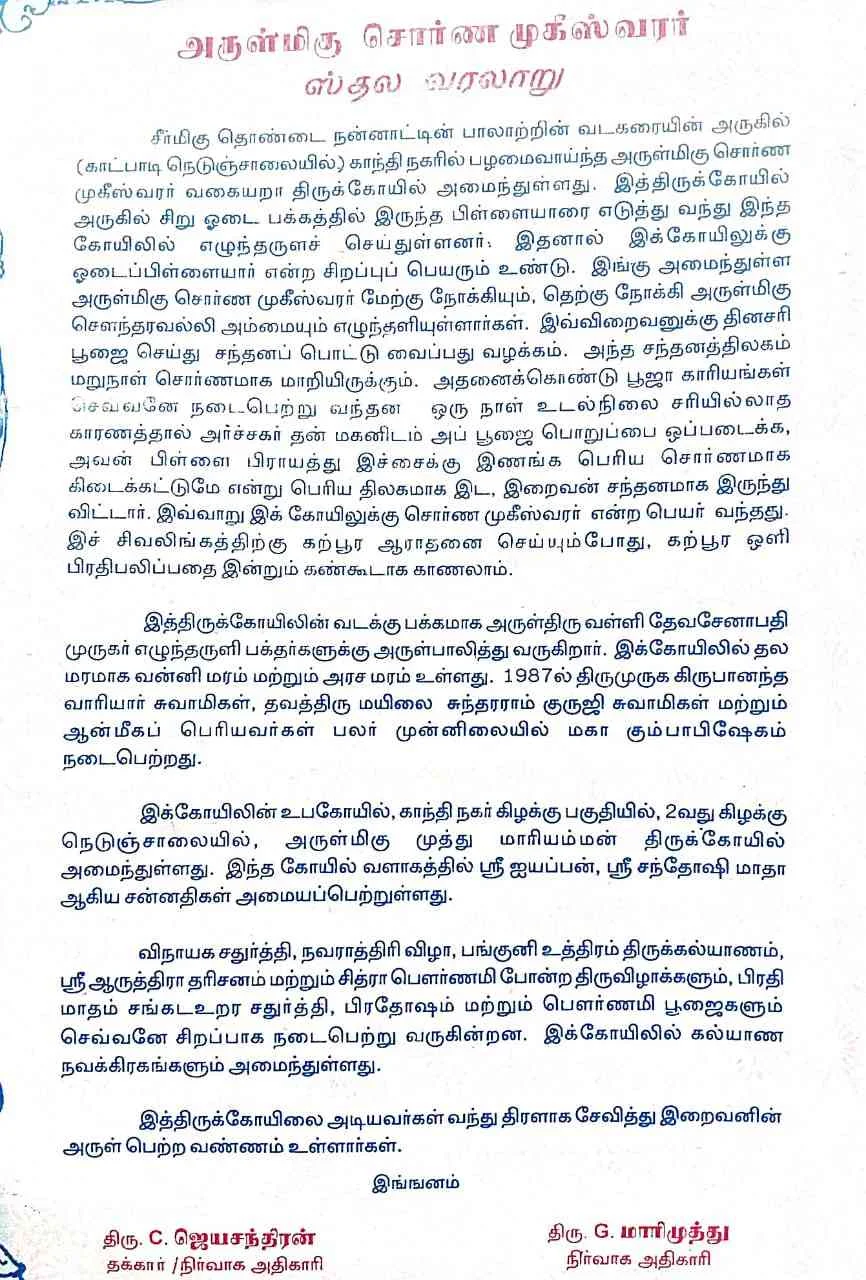 அருள்மிகு சொர்ண முகீஸ்வரர்
ஸ்தல வரலாறு
சீர்மிகு தொண்டை நன்னாட்டின் பாலாற்றின் வடகரையின் அருகில்
(காட்பாடி நெடுஞ்சாலையில்) காந்தி நகரில் பழமைவாய்ந்த அருள்மிகு சொர்ண
முகீஸ்வரர் வகையறா திருக்கோயில் அமைந்துள்ளது. இத்திருக்கோயில்
அருகில் சிறு ஓடை பக்கத்தில் இருந்த பிள்ளையாரை எடுத்து வந்து இந்த
கோயிலில் எழுந்தருளச் செய்துள்ளனர். இதனால் இக்கோயிலுக்கு
ஓடைப்பிள்ளையார் என்ற சிறப்புப் பெயரும் உண்டு. இங்கு அமைந்துள்ள
அருள்மிகு சொர்ண முகீஸ்வரர் மேற்கு நோக்கியும், தெற்கு நோக்கி அருள்மிகு
சௌந்தரவல்லி அம்மையும் எழுந்தளியுள்ளார்கள். இவ்விறைவனுக்கு தினசரி
பூஜை செய்து சந்தனப் பொட்டு வைப்பது வழக்கம். அந்த சந்தனத்திலகம்
மறுநாள் சொர்ணமாக மாறியிருக்கும். அதனைக்கொண்டு பூஜா காரியங்கள்
செவ்வனே நடைபெற்று வந்தன ஒரு நாள் உடல்நிலை சரியில்லாத
காரணத்தால் அர்ச்சகர் தன் மகனிடம் அப் பூஜை பொறுப்பை ஒப்படைக்க,
அவன் பிள்ளை பிராயத்து இச்சைக்கு இணங்க பெரிய சொர்ணமாக
கிடைக்கட்டுமே என்று பெரிய திலகமாக இட, இறைவன் சந்தனமாக இருந்து
விட்டார். இவ்வாறு இக் கோயிலுக்கு சொர்ண முகீஸ்வரர் என்ற பெயர் வந்தது.
இச் சிவலிங்கத்திற்கு கற்பூர ஆராதனை செய்யும்போது, கற்பூர ஒளி
பிரதிபலிப்பதை இன்றும் கண்கூடாக காணலாம்.
இத்திருக்கோயிலின் வடக்கு பக்கமாக அருள்திரு வள்ளி தேவசேனாபதி
முருகர் எழுந்தருளி பக்தர்களுக்கு அருள்பாலித்து வருகிறார். இக்கோயிலில் தல
மரமாக வன்னி மரம் மற்றும் அரச மரம் உள்ளது. 1987ல் திருமுருக கிருபானந்த
வாரியார் சுவாமிகள், தவத்திரு மயிலை சுந்தரராம் குருஜி சுவாமிகள் மற்றும்
ஆன்மீகப் பெரியவர்கள் பலர் முன்னிலையில் மகா கும்பாபிஷேகம்
நடைபெற்றது.
இக்கோயிலின் உபகோயில், காந்தி நகர் கிழக்கு பகுதியில், 2வது கிழக்கு
நெடுஞ்சாலையில், அருள்மிகு முத்து மாரியம்மன் திருக்கோயில்
அமைந்துள்ளது. இந்த கோயில் வளாகத்தில் ஸ்ரீ ஐயப்பன், ஸ்ரீ சந்தோஷி மாதா
ஆகிய சன்னதிகள் அமையப்பெற்றுள்ளது.
விநாயக சதுர்த்தி, நவராத்திரி விழா, பங்குனி உத்திரம் திருக்கல்யாணம்,
ஸ்ரீ ஆருத்திரா தரிசனம் மற்றும் சித்ரா பௌர்ணமி போன்ற திருவிழாக்களும், பிரதி
மாதம் சங்கடஉறர சதுர்த்தி, பிரதோஷம் மற்றும் பௌர்ணமி பூஜைகளும்
செவ்வனே சிறப்பாக நடைபெற்று வருகின்றன. இக்கோயிலில் கல்யாண
நவக்கிரகங்களும் அமைந்துள்ளது.
இத்திருக்கோயிலை அடியவர்கள் வந்து திரளாக சேவித்து இறைவனின்
அருள் பெற்ற வண்ணம் உள்ளார்கள்.
இங்ஙனம்
திரு. C. ஜெயசந்திரன்
தக்கார் /நிர்வாக அதிகாரி
திரு. G. மாரிமுத்து
நிர்வாக அதிகாரி